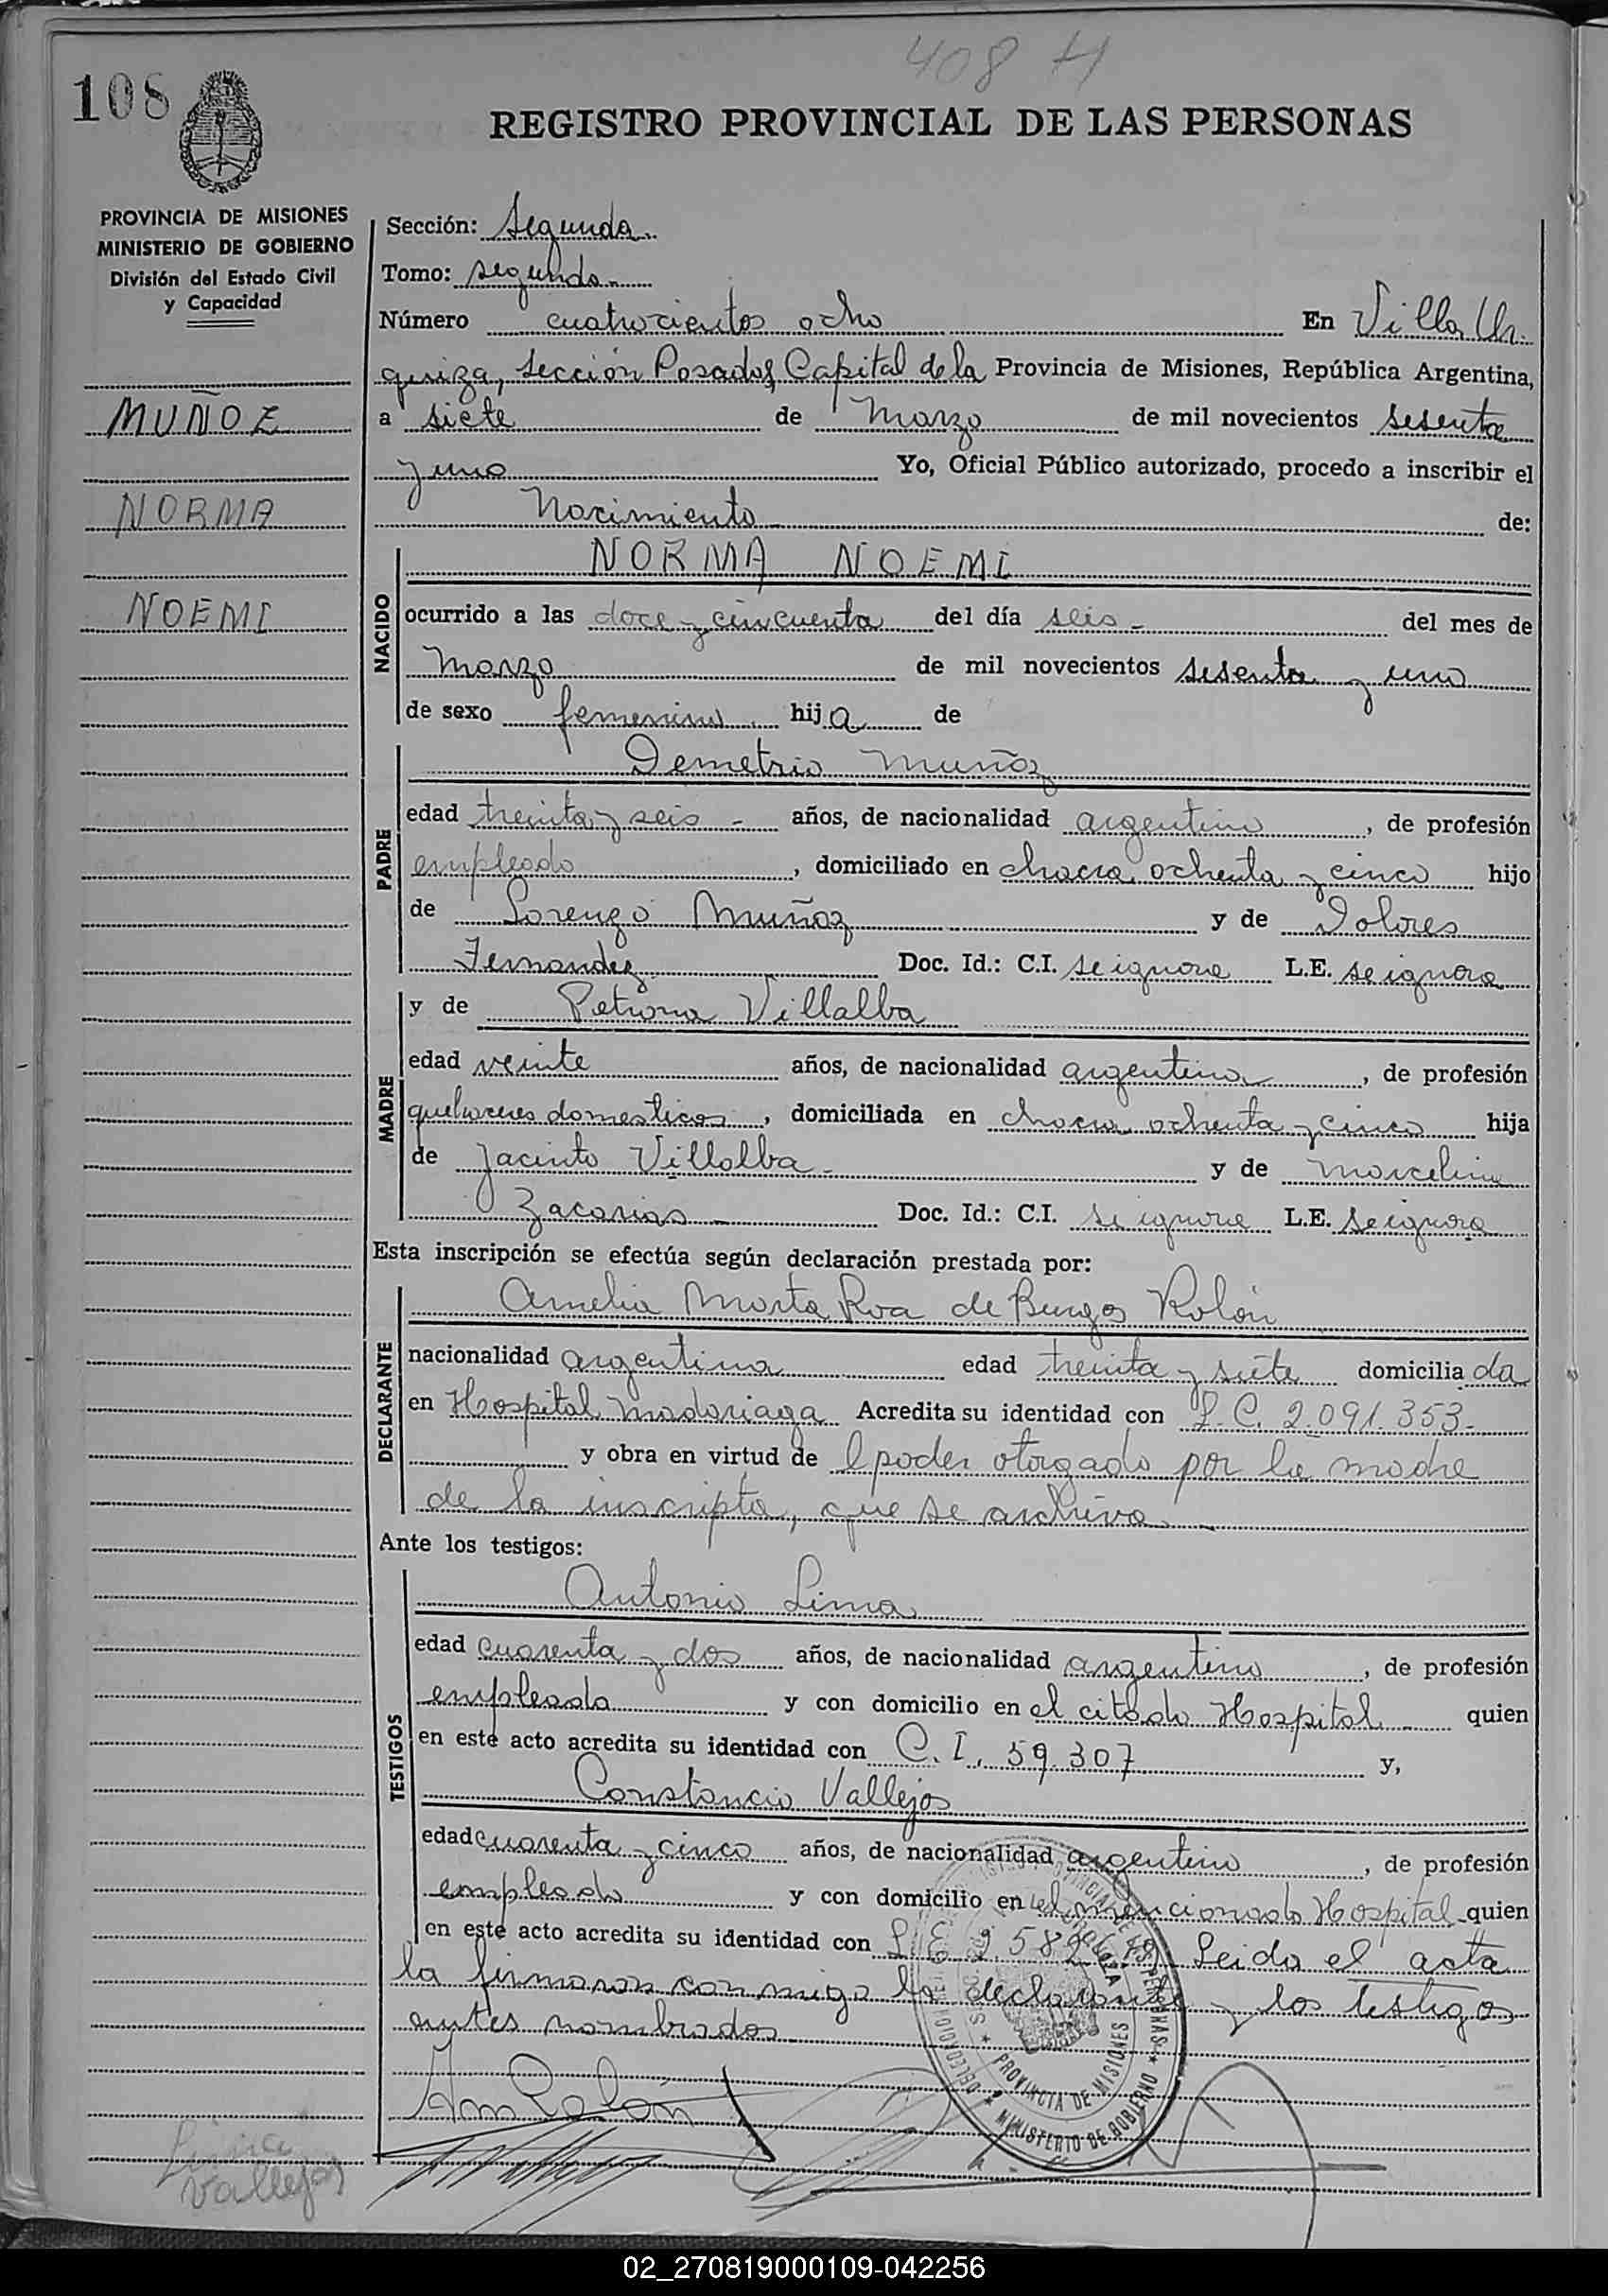 408 H
108
REGISTRO PROVINCIAL DE LAS PERSONAS
PROVINCIA DE MISIONES
MINISTERIO DE GOBIERNO
División del Estado Civil
y Capacidad
MUÑOZ
NORMA
NOEMI
Sección: Segunda.
Tomo: segundo
Número cuatrocientos ocho En Villa Ur-
quiza, Sección Posadas, Capital de la Provincia de Misiones, República Argentina,
a siete de Marzo de mil novecientos sesenta
y uno Yo, Oficial Público autorizado, procedo a inscribir el
Nacimiento de:
NACIDO
NORMA NOEMI
ocurrido a las doce y cincuenta del día seis - del mes de
Marzo de mil novecientos sesenta y uno
de sexo femenino hija de
PADRE
Demetrio Muñoz
edad treinta y seis - años, de nacionalidad argentino, de profesión
empleado, domiciliado en chacra ochenta y cinco hijo
de Lorenzo Muñoz y de Dolores
Fernandez Doc. Id.: C.I. se ignora L.E. se ignora
MADRE
y de Petrona Villalba
edad veinte años, de nacionalidad argentina, de profesión
quehaceres domesticos, domiciliada en chacra ochenta y cinco hija
de Jacinto Villalba y de Marcelina
Zacarias Doc. Id.: C.I. se ignora L.E. se ignora
Esta inscripción se efectúa según declaración prestada por:
DECLARANTE
Amelia Marta Roa de Burgos Rolón
nacionalidad argentina edad treinta y siete domiciliada
en Hospital Madariaga Acredita su identidad con L.C. 2.091.353-
y obra en virtud de l poder otorgado por la madre
de la inscripta, que se archiva
Ante los testigos:
TESTIGOS
Antonio Lima
edad cuarenta y dos años, de nacionalidad argentino, de profesión
empleado y con domicilio en el citado Hospital quien
en este acto acredita su identidad con C.I. 59.307 y,
Constancio Vallejos
edad cuarenta y cinco años, de nacionalidad argentino, de profesión
empleado y con domicilio en el mencionado Hospital quien
en este acto acredita su identidad con L.E. Leida el acta
la firmaron conmigo la declarante y los testigos
antes nombrados
AmRolón
PROVINCIA DE MISIONES
MINISTERIO DE GOBIERNO
Lima
Vallejos
02_270819000109-042256